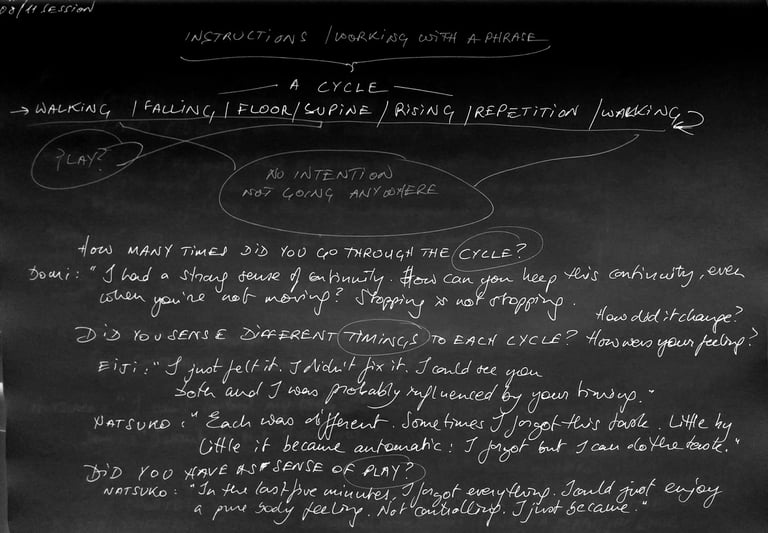 00/11 SESSION
INSTRUCTIONS / WORKING WITH A PHRASE
A CYCLE
→ WALKING / FALLING / FLOOR / SUPINE / RISING / REPETITION / WALKING
PLAY?
NO INTENTION
NOT GOING ANYWHERE
HOW MANY TIMES DID YOU GO THROUGH THE CYCLE?
Domi: "I had a strong sense of continuity. How can you keep this continuity, even
when you're not moving? Stopping is not stopping.
How did it change?
DID YOU SENSE DIFFERENT TIMINGS TO EACH CYCLE? How was your feeling?
EIJI: "I just felt it. I didn't fix it. I could see you
both and I was probably influenced by your timing."
NATSUKO: "Each was different. Sometimes I forgot this task. Little by
little it became automatic: I forgot but I can do the task."
DID YOU HAVE A SENSE OF PLAY?
NATSUKO: "In the last five minutes, I forgot everything. I could just enjoy
a pure body feeling. Not controlling. I just became."